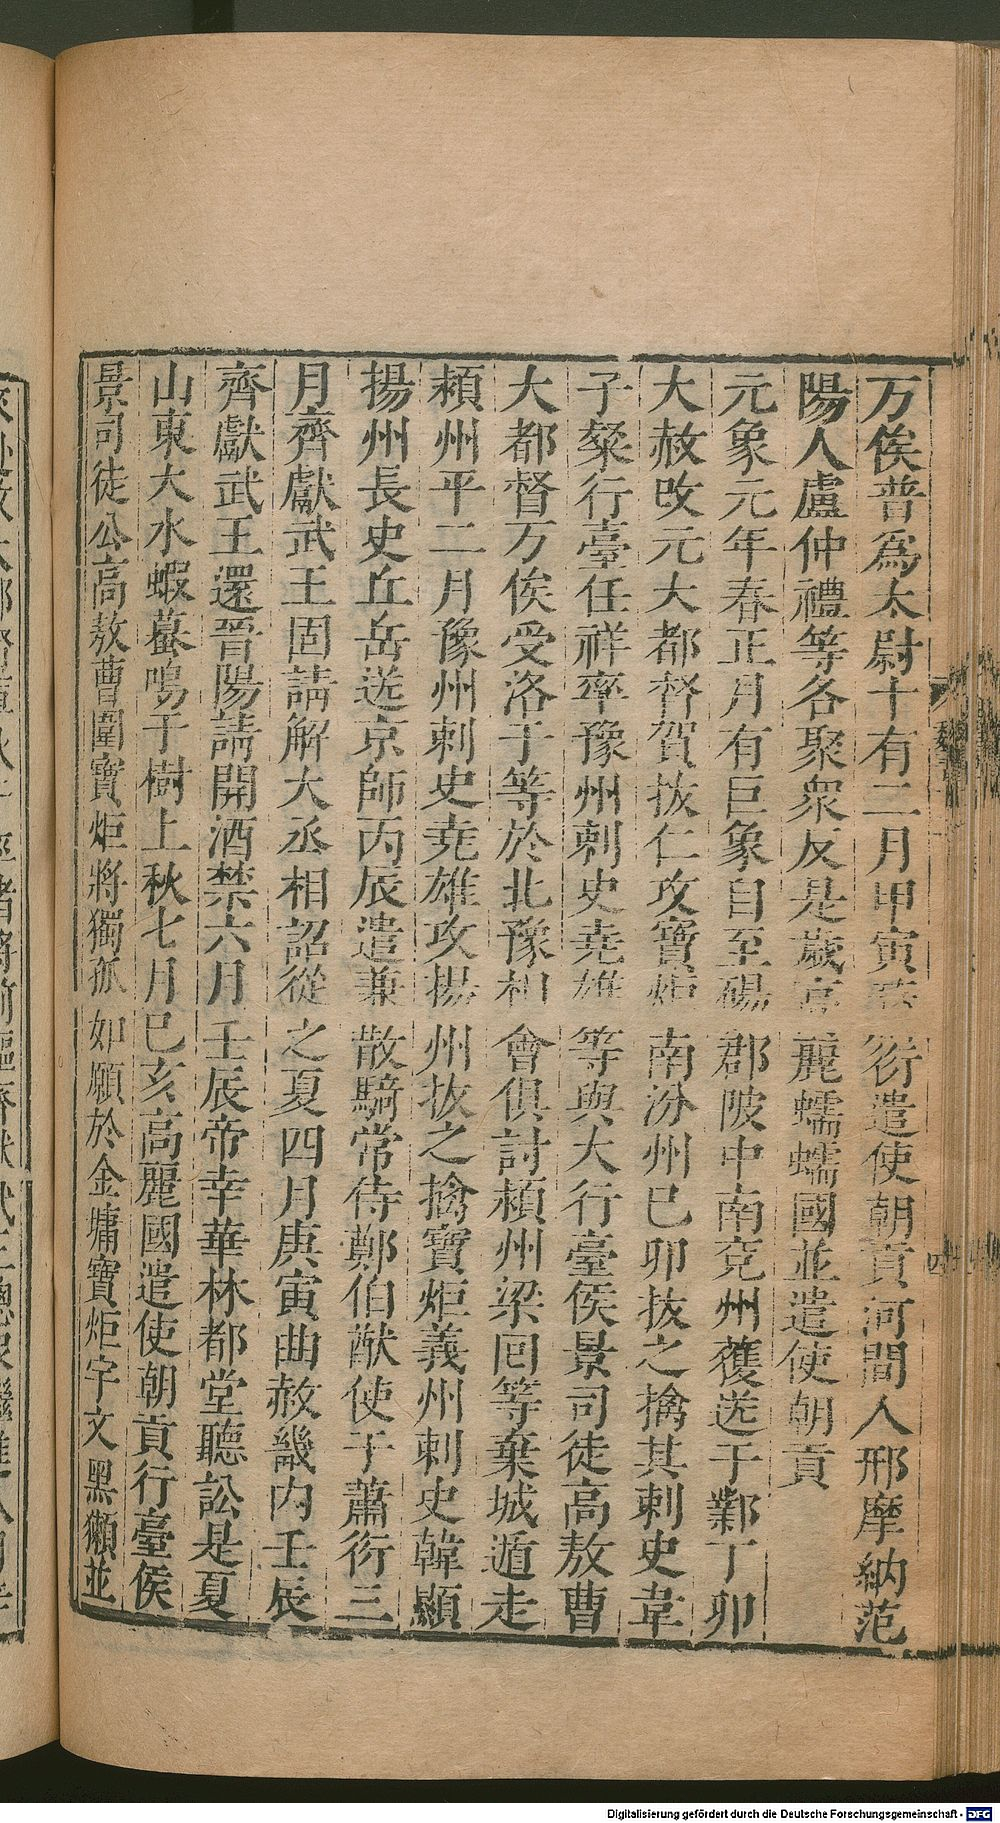 万俟普為太尉十有二月甲寅蕭衍遣使朝貢河間人邢摩納范
陽人盧仲禮等各聚衆反是歲高麗蠕蠕國並遣使朝貢
元象元年春正月有巨象自至碭郡陂中南兗州獲送于鄴丁卯
大赦改元大都督賀拔仁攻寶炬南汾州己卯拔之擒其刺史韋
子粲行臺任祥率豫州刺史堯雄等與大行臺侯景司徒高敖曹
大都督万俟受洛于等於北豫相會俱討潁州梁回等棄城遁走
潁州平二月豫州刺史堯雄攻揚州拔之擒寶炬義州刺史韓顯
揚州長史丘岳送京師丙辰遣兼散騎常侍鄭伯猷使于蕭衍三
月齊獻武王固請解大丞相詔從之夏四月庚寅曲赦畿內壬辰
齊獻武王還晉陽請開酒禁六月壬辰帝幸華林都堂聽訟是夏
山東大水蝦蟇鳴于樹上秋七月己亥高麗國遣使朝貢行臺侯
景司徒公高敖曹圍寶炬將獨孤如願於金墉寶炬宇文黑獺並
四
Digitalisierung gefördert durch die Deutsche Forschungsgemeinschaft - DFG